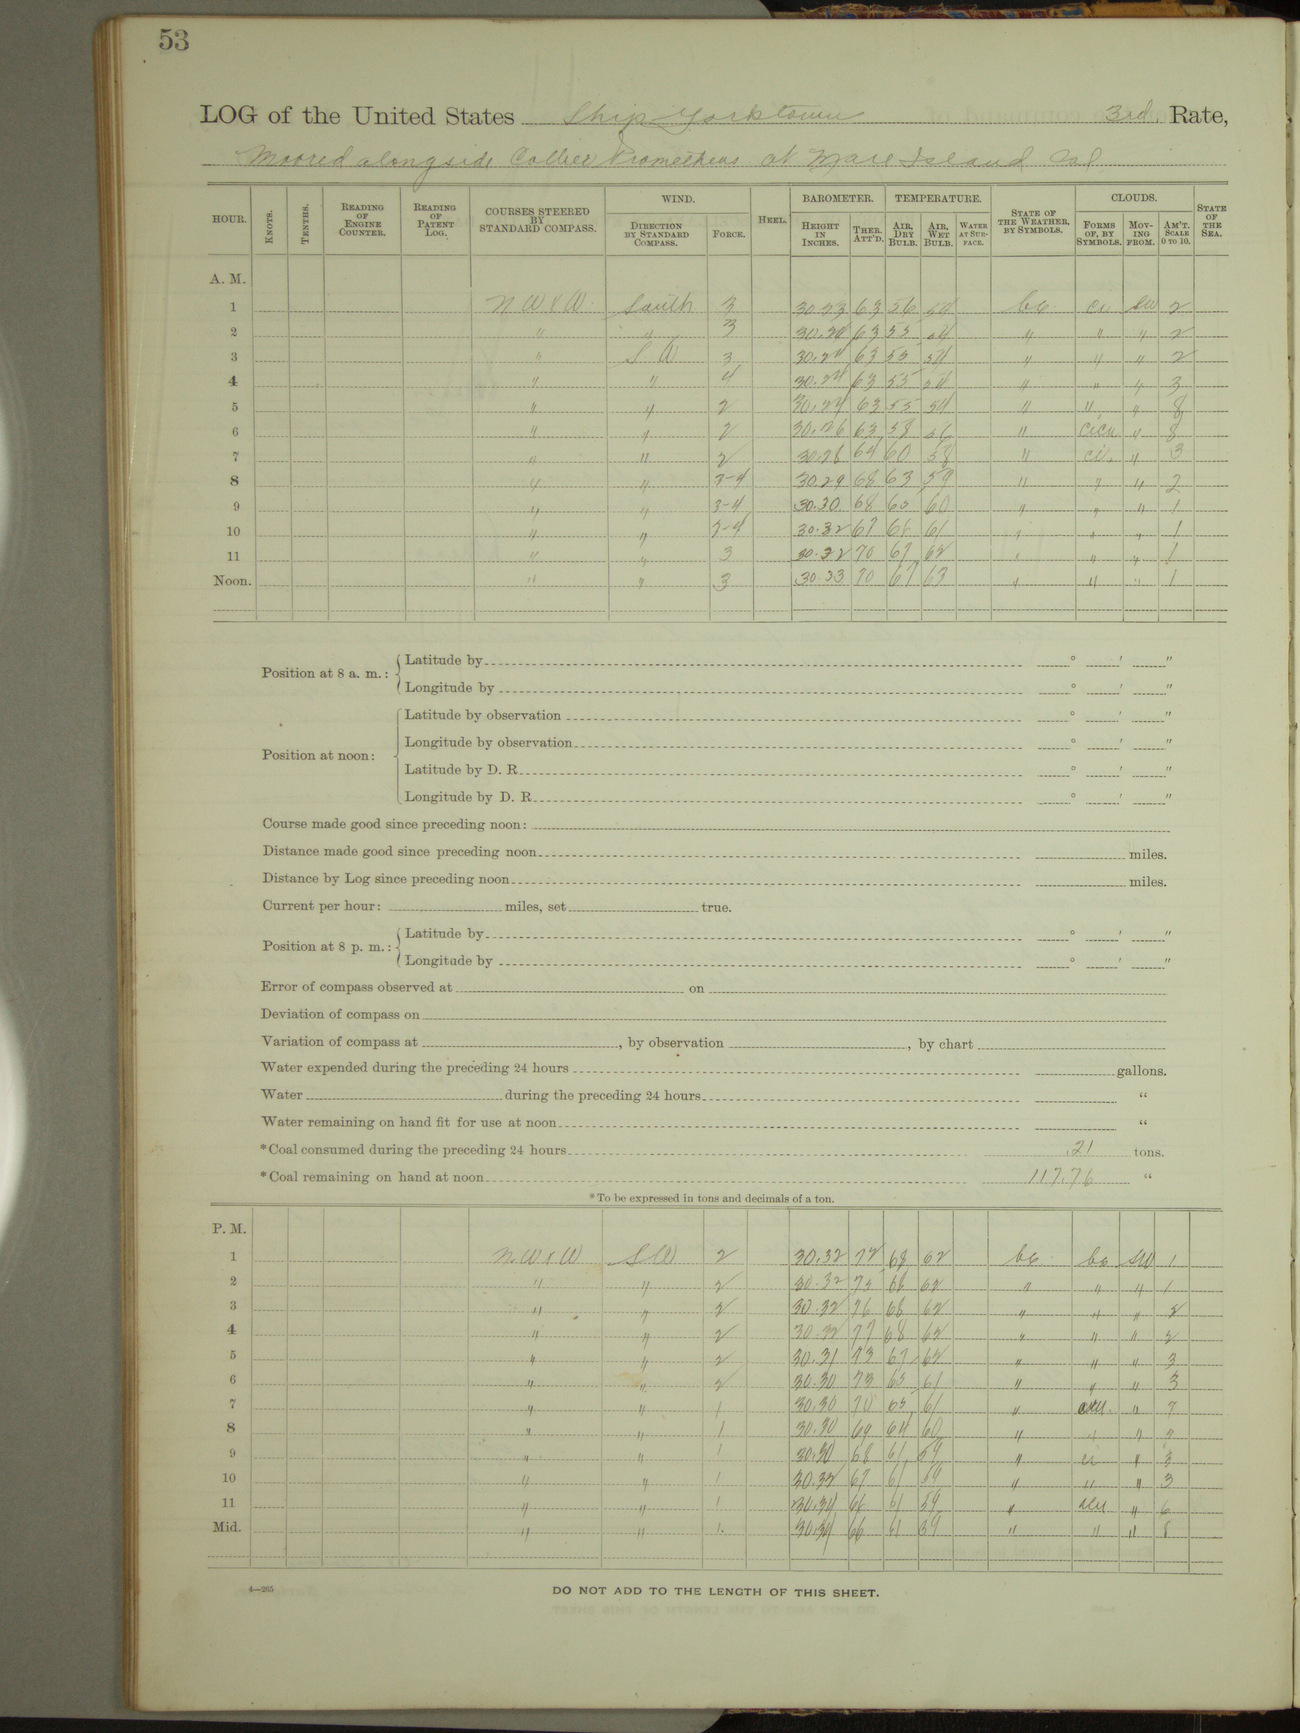 53
LOG of the United States Ship Yorktown 3rd Rate,
Moored alongside Collier Prometheus at Mare Island Cal
HOUR. KNOTS. TENTHS. READING OF ENGINE COUNTER. READING OF PATENT LOG. COURSES STEERED BY STANDARD COMPASS. WIND. DIRECTION BY STANDARD COMPASS. FORCE. HEEL. BAROMETER. HEIGHT IN INCHES. THER. ATT'D. TEMPERATURE. AIR, DRY BULB. AIR, WET BULB. WATER AT SURFACE. STATE OF THE WEATHER, BY SYMBOLS. CLOUDS. FORMS OF, BY SYMBOLS. MOVING FROM. AM'T. SCALE 0 TO 10. STATE OF THE SEA.
A. M.
1 N W x W South 3 30.23 63 56 54 bc cu SW 2
2 " " 3 30.24 63 55 54 " " " 2
3 " S W 3 30.24 63 55 54 " " " 2
4 " " 4 30.24 63 55 54 " " " 3
5 " " 2 30.24 63 55 54 " " " 8
6 " " 2 30.26 63 58 56 " cicu " 8
7 " " 2 30.28 64 60 58 " ci. " 3
8 " " 3-4 30.29 68 63 59 " " " 2
9 " " 3-4 30.30 68 65 60 " " " 1
10 " " 3-4 30.32 67 66 61 " " " 1
11 " " 3 30.32 70 67 62 " " " 1
Noon. " " 3 30.33 70 67 63 " " " 1
Position at 8 a. m.: Latitude by ° ' "
Longitude by ° ' "
Position at noon: Latitude by observation ° ' "
Longitude by observation ° ' "
Latitude by D. R. ° ' "
Longitude by D. R. ° ' "
Course made good since preceding noon:
Distance made good since preceding noon miles.
Distance by Log since preceding noon miles.
Current per hour: miles, set true.
Position at 8 p. m.: Latitude by ° ' "
Longitude by ° ' "
Error of compass observed at on
Deviation of compass on
Variation of compass at , by observation , by chart
Water expended during the preceding 24 hours gallons.
Water during the preceding 24 hours "
Water remaining on hand fit for use at noon "
*Coal consumed during the preceding 24 hours .21 tons.
*Coal remaining on hand at noon 117.76 "
*To be expressed in tons and decimals of a ton.
P. M.
1 N.W x W S W 2 30.32 72 68 62 bc bc SW 1
2 " " 2 30.32 75 68 62 " " " 1
3 " " 2 30.32 76 68 62 " " " 2
4 " " 2 30.32 77 68 62 " " " 2
5 " " 2 30.31 73 67 62 " " " 3
6 " " 2 30.30 73 65 61 " " " 3
7 " " 1 30.30 70 65 61 " " 7
8 " " 1 30.30 69 64 60 " " "
9 " " 1 30.30 68 61 59 " ci " 3
10 " " 1 30.32 67 61 59 " " " 3
11 " " 1 30.34 66 61 59 " " 6
Mid. " " 1. 30.34 66 61 59 " " " 8
4—265
DO NOT ADD TO THE LENGTH OF THIS SHEET.